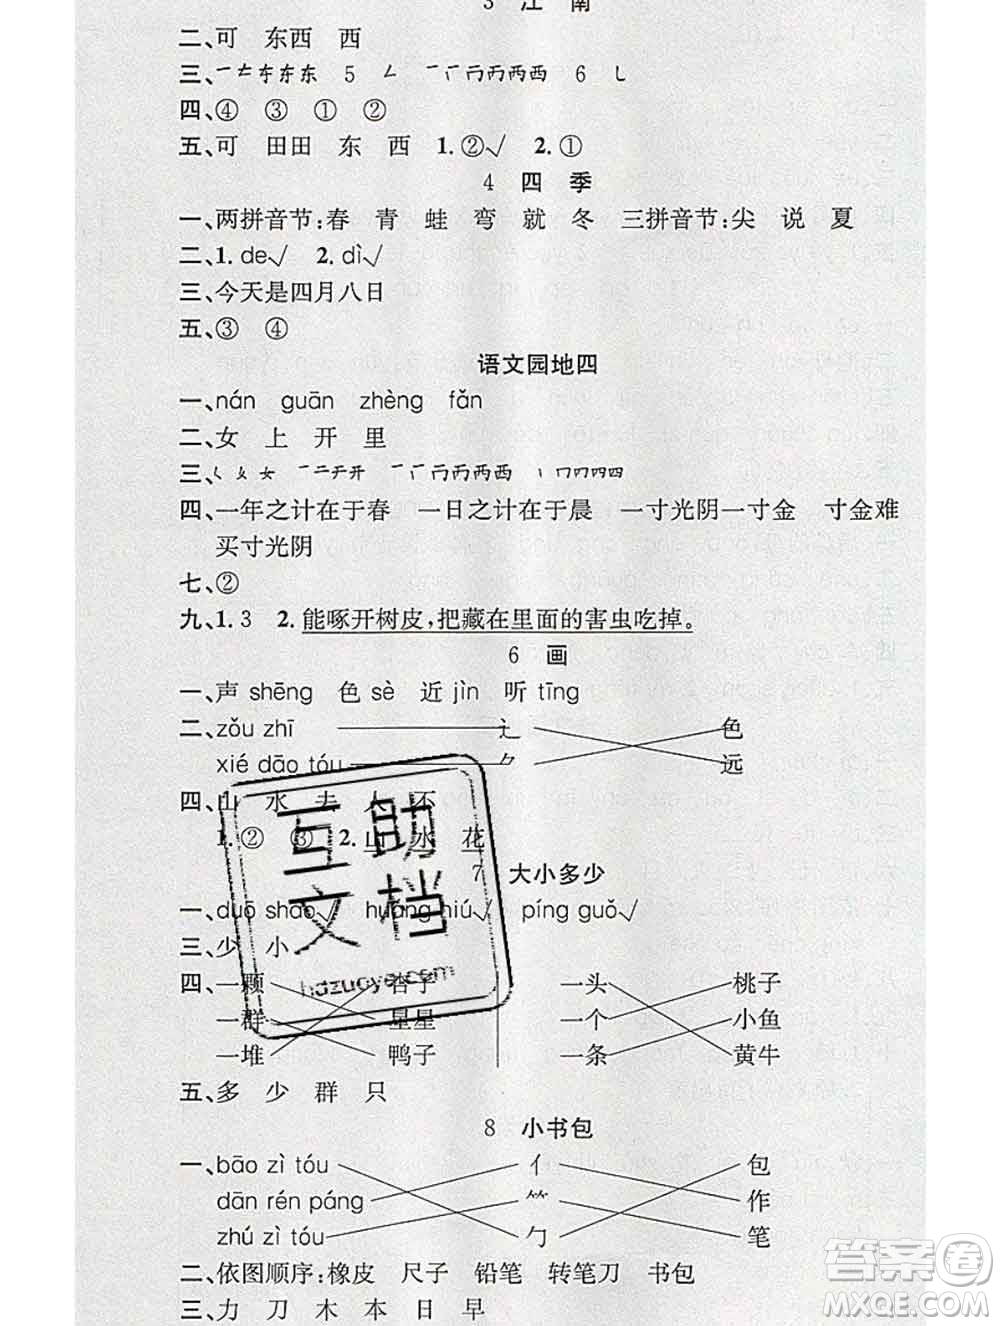 3 江 南
二、可 东西 西
三、一𠂇车东东 5 ㄥ 一厂冂丙西西 6 乚
四、④ ③ ① ②
五、可 田田 东 西 1.②√ 2.①
4 四 季
一、两拼音节:春 青 蛙 弯 就 冬 三拼音节:尖 说 夏
二、1. de√ 2. dì√
三、今天是四月八日
五、③ ④
语文园地四
一、nán guān zhèng fǎn
二、女 上 开 里
三、
四、一年之计在于春 一日之计在于晨 一寸光阴一寸金 寸金难
买寸光阴
七、②
九、1. 3 2. 能啄开树皮,把藏在里面的害虫吃掉。
6 画
一、声 shēng 色 sè 近 jìn 听 tīng
二、zǒu zhī 辶 色
xié dāo tóu ⺈ 远
四、山 水 去 人 不
1.② ③ 2. 山 水 花
7 大小多少
一、duō shǎo√ huáng niú√ píng guǒ√
三、少 小
四、一颗 杏子 一头 桃子
一群 星星 一个 小鱼
一堆 鸭子 一条 黄牛
五、多 少 群 只
8 小书包
一、bāo zì tóu 亻 包
dān rén páng ⺮ 作
zhú zì tóu 勹 笔
二、依图顺序:橡皮 尺子 铅笔 转笔刀 书包
三、力 刀 木 本 日 早
互助
文档
hdzuoye.com
答案圈
MXQE.COM